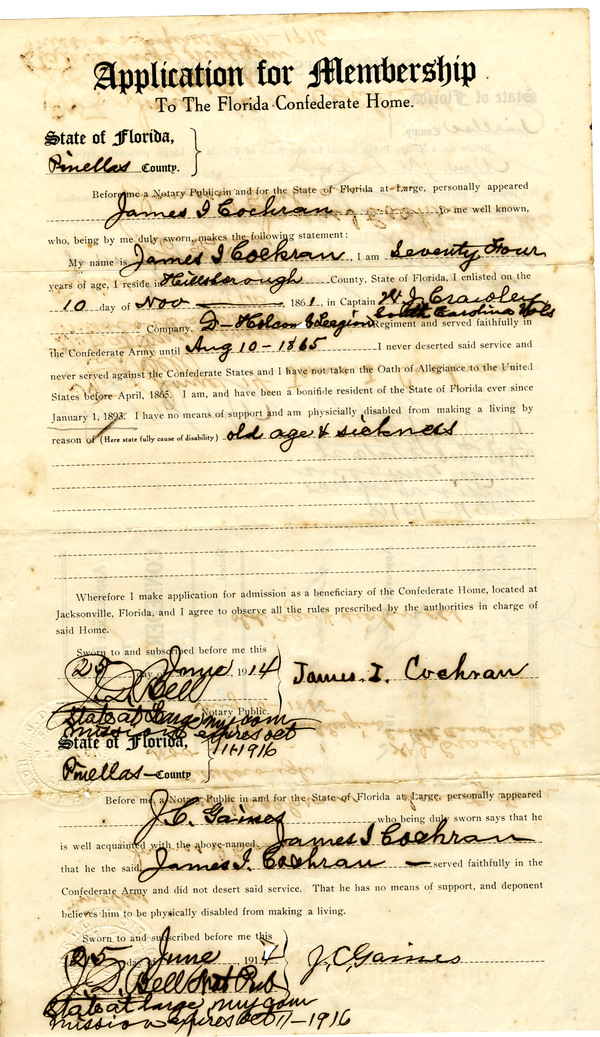 Application for Membership
To The Florida Confederate Home.
State of Florida,
Pinellas County.
Before me a Notary Public in and for the State of Florida at Large, personally appeared
James I Cochran to me well known,
who, being by me duly sworn, makes the following statement:
My name is James I Cochran, I am Seventy Four
years of age, I reside in Hillsborough County, State of Florida, I enlisted on the
10 day of Nov 1861. in Captain W. J. Crawley
South Carolina Vols
Company, D - Holcomb Leegion Regiment and served faithfully in
the Confederate Army until Aug 10 - 1865 I never deserted said service and
never served against the Confederate States and I have not taken the Oath of Allegiance to the United
States before April, 1865. I am, and have been a bonifide resident of the State of Florida ever since
January 1, 1893. I have no means of support and am physicially disabled from making a living by
reason of (Here state fully cause of disability) old age & sickness
Wherefore I make application for admission as a beneficiary of the Confederate Home, located at
Jacksonville, Florida, and I agree to observe all the rules prescribed by the authorities in charge of
said Home.
Sworn to and subscribed before me this
25 day of June, 1914 James. I. Cochran
J. D. Bell
Notary Public.
State at Large my com
mission expires oct
11-1916
State of Florida,
Pinellas - County
Before me, a Notary Public in and for the State of Florida at Large, personally appeared
J. C. Gaines who being duly sworn says that he
is well acquainted with the above-named James I Cochran
that he the said James I. Cochran - served faithfully in the
Confederate Army and did not desert said service. That he has no means of support, and deponent
believes him to be physically disabled from making a living.
Sworn to and subscribed before me this
25 day of June, 1914 J. C. Gaines
J. D. Bell Not Pub
State at large my com
mission expires oct 11 - 1916